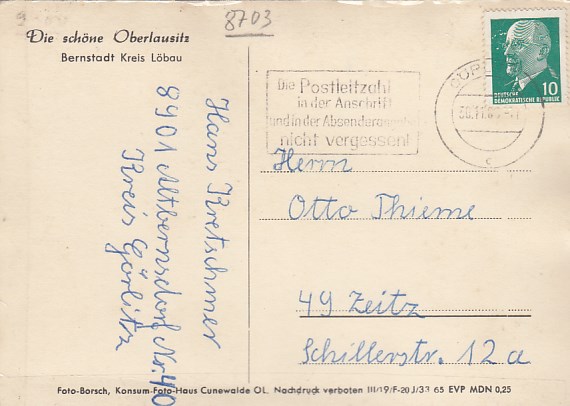 8703
Die schöne Oberlausitz
Bernstadt Kreis Löbau
Hans Kretschmer
8901 Altbernsdorf Nr. 40
Kreis Görlitz
Die Postleitzahl
in der Anschrift
und in der
nicht vergessen!
DEUTSCHE
DEMOKRATISCHE REPUBLIK
10
c
Herrn
Otto Thieme
49 Zeitz
Schillerstr. 12 a
Foto-Borsch, Konsum-Foto-Haus Cunewalde OL, Nachdruck verboten III/19/F-20 J/33 65 EVP MDN 0,25